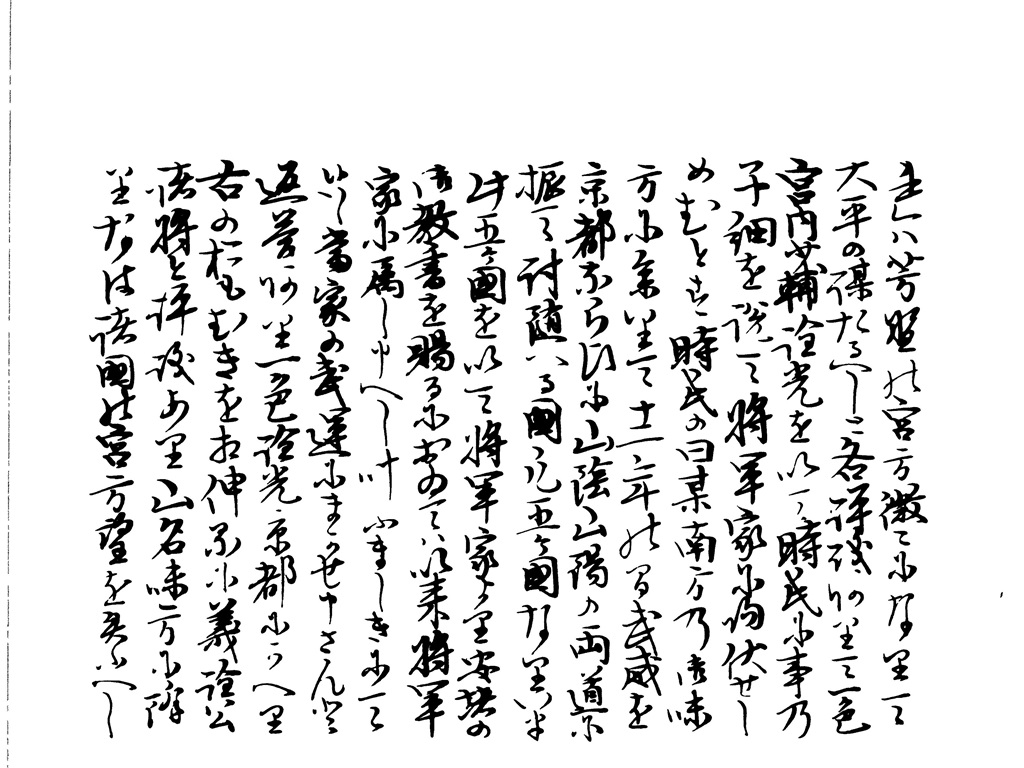 れハ芳野の宮方微々になりて
大平の謀たるへしと各評議ありて一色
宮内少輔詮光を以て時氏に事の
子細を説て将軍家に帰伏せし
めむとす時氏の曰某南方乃御味
方に参りて十二年の間武威を
京都ならひに山陰山陽の両道に
振て討随へる國凡五ヶ國なり今
此五ヶ國を以て将軍家より安堵の
御教書を賜るにおゐてハ以来将軍
家に属し申へし叶ふましきにて
當家の武運にまかせ申さんと
返答あり一色詮光京都にかへり
右のおもむきを相伸るに義詮公
諸将と評議あり山名味方に降
りなは諸國の宮方望を失ふへし